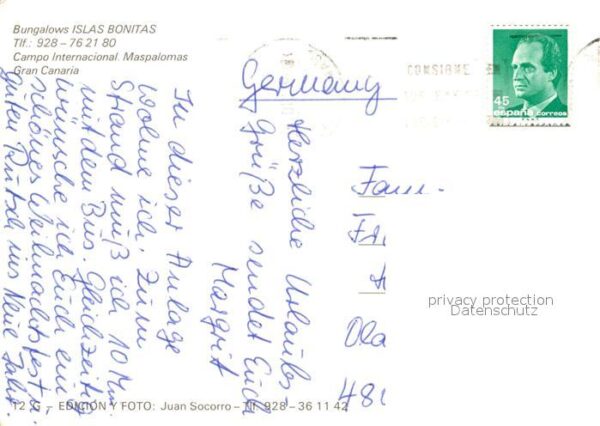 Bungalows ISLAS BONITAS
Tlf.: 928 – 76 21 80
Campo Internacional. Maspalomas
Gran Canaria
In dieser Anlage
wohne ich. Zum
Strand muß ich 10 Min.
mit dem Bus. Gleichzeitig
wünsche ich Euch ein
schönes Weihnachtsfest u.
guten Rutsch ins Neue Jahr.
Herzliche Urlaubs-
grüße sendet Euch
Margrit
Germany
CONSIGNE EN
45
españa correos
Fam.
Fr
Ola
48
privacy protection
Datenschutz
12 G – EDICION Y FOTO: Juan Socorro – Tlf. 928 – 36 11 42